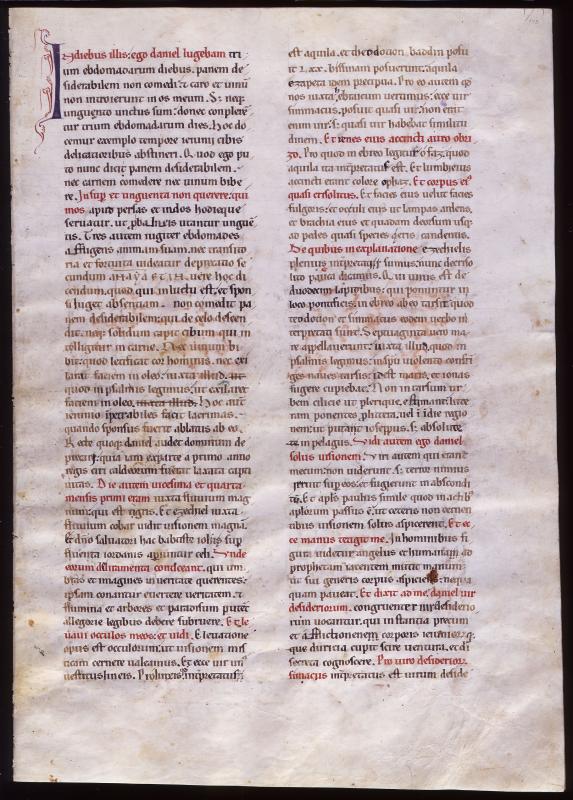 In diebus illis. ego daniel lugebam tri
um ebdomadarum diebus. panem de
siderabilem non comedi. et caro et uinū
non introierunt in os meum. S; neq;
unguento unctus sum. donec complerē
tur trium ebdomadarum dies. Hoc do
cemur exemplo tempore ieiunii cibis
delicatioribus abstineri. Quod ego pu
to nunc dici panem desiderabilem.
nec carnem comedere nec uinum bibe
re. Insup et unguenta non querere. qui
mos apud persas et indos hodieque
seruatur. ut p balneis utantur unguē
tis. Tres autem iugiter ebdomades
affligens animam suam. nec transito
ria et fortuita uideatur deprecatio se
cundum uere hoc di
cendum. quod qui in luctu est. et spon
si luget absentiam. non comedit pa
nem desiderabilem. qui de celo descen
dit. neq; solidum capit cibum. qui in
telligitur in carne. Nec uinum bi
bit. quod letificat cor hominis. nec exi
larat faciem in oleo. iuxta illud. ut
quod in psalmis legimus. ut exilaret
faciem in oleo. iuxta illud. Hoc aut
ieiunio ipetrabiles facit lacrimas.
quando sponsus fuerit ablatus ab eo.
Recte quoq; daniel audet dominum de
precari. quia iam ex parte a primo anno
regis ciri caldeorum fuerat laxata capti
uitas. Die autem uicesima et quarta
mensis primi eram iuxta fluuium mag
num. qui est tigris. Et ezechiel iuxta
fluuium cobar uidit uisionem magnā.
Et dno saluatori hac baptiste iohis sup
fluenta iordanis apiuntur celi. Unde
eorum deliramenta condeant. qui um
bras et imagines in ueritate querentes.
ipsam conantur euertere ueritatem. ut
flumina et arbores et paradisum putēt
allegorie legibus debere subruere. Et le
uaui oculos meos. et uidi. Eleuatione
opus est oculorum. ut uisionem mis
ticam cernere ualeamus. Et ecce uir unꝰ
uestitus lineis. Pro lineis. interpretatus
est aquila. et theodotion baddin posu
it. LXX. bissinam posuerunt. aquila
precipua. Pro eo autem qd
nos iuxta hebraicum uertimus. ecce uir
simmacus. posuit quasi uir. non enim
enim uir. s; quasi uir habebat similitu
dinem. Et renes eius accincti auro obri
zo. Pro quo in ebreo legitur ofaz. quod
aquila ita interpretatus est. Et lumbi eius
accincti erant colore ophaz. Et corpus eiꝰ
quasi crisolitus. Et facies eius uelut facies
fulgoris. et oculi eius ut lampas ardens.
et brachia eius et quadam deorsum usq;
ad pedes quasi species eris candentis.
De quibus in explanatione ezechielis
plenius interpretati sumus. nunc deorso
lito pauca dicimus. Q ui unus est de
duodecim lapidibus. qui ponuntur in
loco pontificis. in ebreo abeo tarsis. quod
teodotion et simmacus eodem uerbo in
terpretati sunt. Septuaginta uero ma
re appellauerunt. iuxta illud quod in
psalmis legimus. in spū uiolento confri
geS naues tarsis. id est maris. et ionas
fugere cupiebat. Non in tarsum ur
bem cilicie ut plerique estimant. litte
ram ponentes p littera. uel idie regio
nem. ut putant iosephus. s; absolute
in pelagus. Vidi autem ego daniel
solus uisionem. Viri autem qui erant
mecum. non uiderunt. s; terror nimius
irruit sup eos. et fugierunt in abscondi
tū. Et apls paulus simile quod in actibꝰ
aplorum passus ē. ut ceteris non cernen
tibus uisionem solus aspiceret. Et ec
ce manus tetigit me. In hominibus fi
gura uidetur angelus et humanam ad
prophetam iacentem mittit manum.
ut sui generis corpus aspiciens. nequa
quam paueat. Et dixit ad me. daniel uir
desideriorum. congruenter uir desiderio
rum uocantur. qui instantia precum
et afflictionem corporis ieiunior q;
que duricia cupit scire uentura. et di
secreta cognoscere. Pro uiro desiderior.
simacus interpretatus est uirum deside